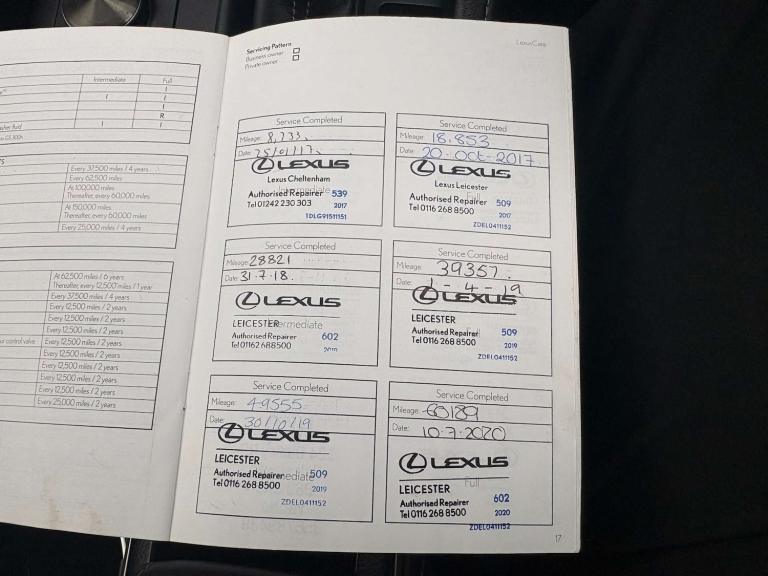 Intermediate Full
I
I I
I
R
sher fluid I I
Every 37,500 miles / 4 years
Every 62,500 miles
At 100,000 miles
Thereafter, every 60,000 miles
At 150,000 miles
Thereafter, every 60,000 miles
Every 25,000 miles / 4 years
At 62,500 miles / 6 years
Thereafter, every 12,500 miles / 1 year
Every 37,500 miles / 4 years
Every 12,500 miles / 2 years
Every 12,500 miles / 2 years
Every 12,500 miles / 2 years
ur control valve Every 12,500 miles / 2 years
Every 12,500 miles / 2 years
Every 12,500 miles / 2 years
Every 12,500 miles / 2 years
Every 12,500 miles / 2 years
Every 25,000 miles / 2 years
LexusCare
Servicing Pattern
Business owner
Private owner
Service Completed
Mileage: 8,733
Date: 25/01/17
LEXUS
Lexus Cheltenham
Intermediate
Authorised Repairer 539
Tel 01242 230 303 2017
1DLG91511151
Service Completed
Mileage: 18.853
Date: 20-Oct-2017
LEXUS
Lexus Leicester
Full
Authorised Repairer 509
Tel 0116 268 8500 2017
ZDEL0411152
Service Completed
Mileage: 28821
Date: 31.7.18.
LEXUS
LEICESTER Intermediate
Authorised Repairer 602
Tel 0116 2688500
Service Completed
Mileage: 39357.
Date: 1-4-19
LEXUS
LEICESTER
Authorised Repairer Full 509
Tel 0116 268 8500 2019
ZDEL0411152
Service Completed
Mileage: 49555
Date: 30/10/19
LEXUS
LEICESTER
Authorised Repairer Intermediate 509
Tel 0116 268 8500 2019
ZDEL0411152
Service Completed
Mileage: 60189
Date: 10.7.2020
LEXUS
Full
LEICESTER
Authorised Repairer 602
Tel 0116 268 8500 2020
ZDEL0411152
17